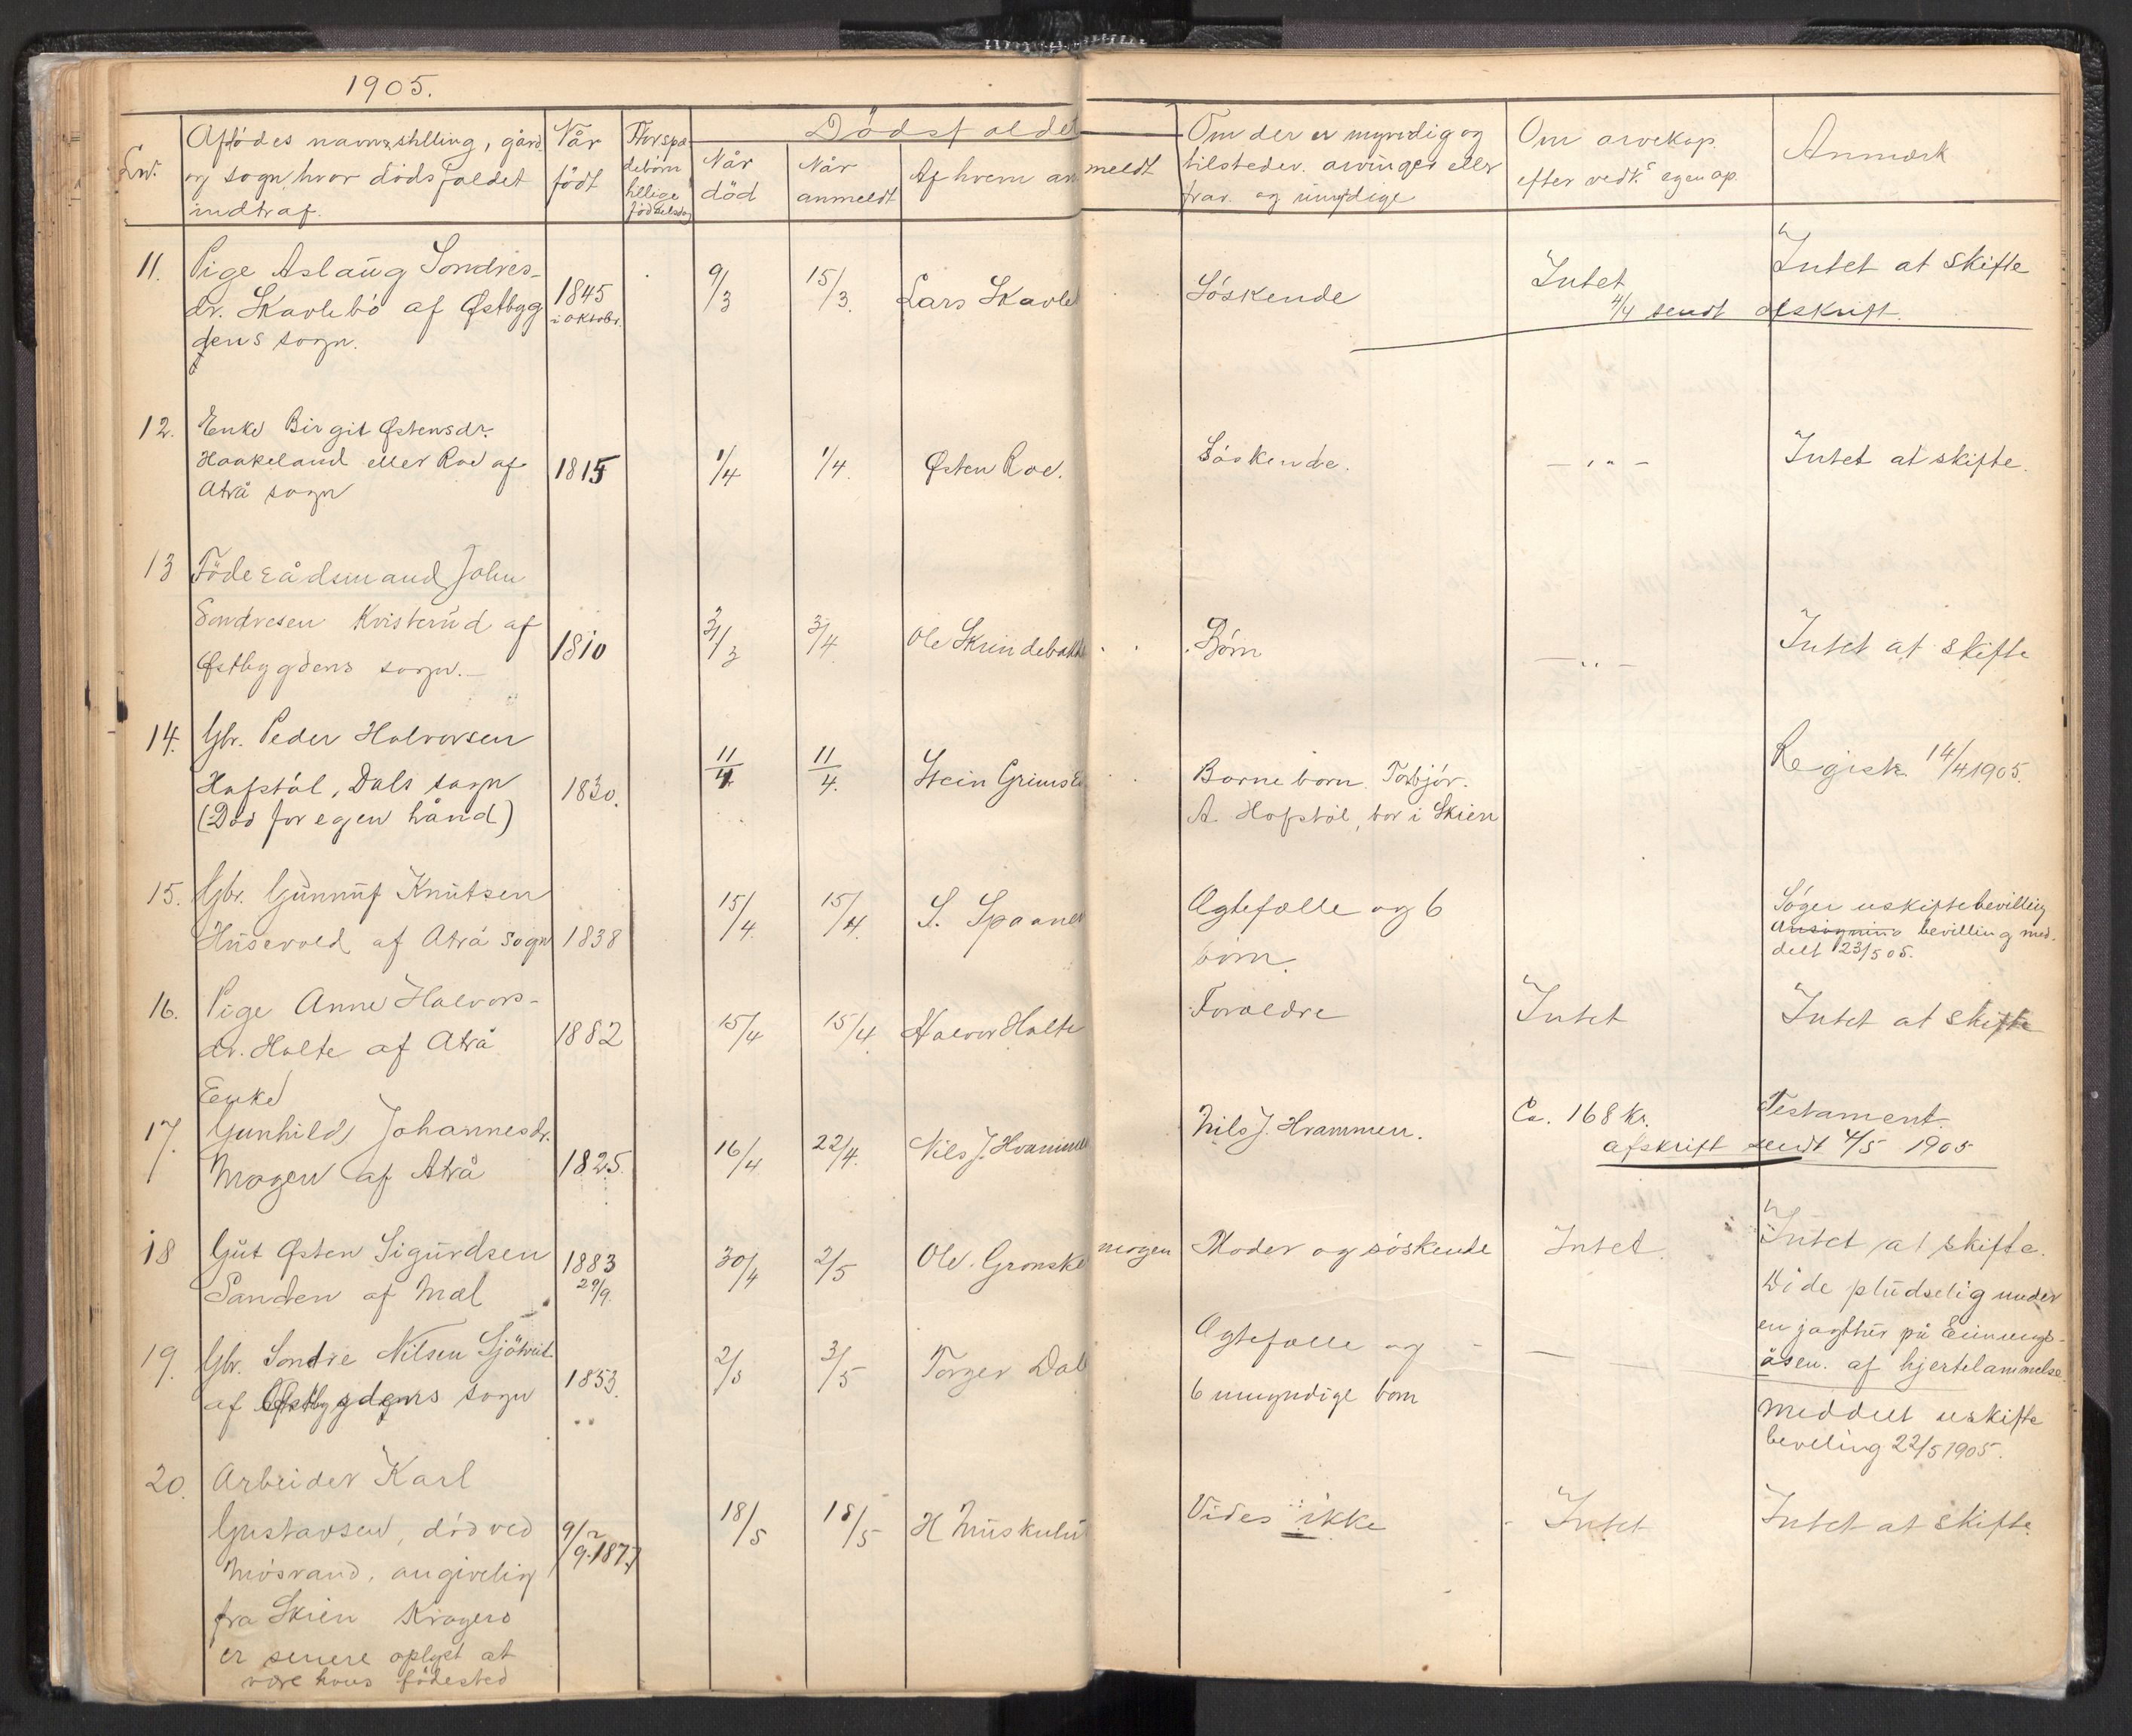 1905.
Lnr. Afdödes navn, stilling, gård og sogn, hvor dödsfaldet indtraf.
Når födt
For spædebörn tillige födselsdag
Dödsfaldet
Når död
Når anmeldt
Af hvem anmeldt
Om der er myndig og tilstedev. arvinger eller frav. og umyndige
Om arvekap. efter vedk.s egen op.
Anmærk
11. Pige Aslaug Sondres-
dr. Skavlebö af Østbyg
dens sogn.
1845
i oktobr.
9/3
15/3.
Lars Skavleb
Söskende
Intet
Intet at skifte
4/4 sendt afskrift.
12. Enke Birgit Østensdr.
Haakeland eller Roe af
Atrå sogn
1815
1/4
1/4.
Østen Roe.
Söskende.
— „ —
Intet at skifte.
13 Föderådsmand John
Sondresen Kvisterud af
Østbygdens sogn.—
1810
31/3
3/4
Ole Skrindebakk
Børn
— „ —
Intet at skifte
14. Gbr. Peder Halvorsen
Hafstöl, Dals sogn
(Död for egen hånd)
1830.
11/4
11/4.
Stein Grims
Barneborn. Torbjör.
A. Hofstöl, bor i Skien
Registr. 14/4 1905.
15. Gbr. Gunnuf Knutsen
Husevold af Atrå sogn
1838
15/4.
15/4.
S. Spaane
Ægtefælle og 6
börn.
Söger uskiftebevilling
Ansögning bevilling med-
delt 23/5 05.
16. Pige Anne Halvors-
dr. Holte af Atrå
1882
15/4
15/4
Halvor Holte
Forældre
Intet
Intet at skifte
Enke
17. Gunhild Johannesdr.
Mogen af Atrå
1825.
16/4
22/4.
Nils J. Hvamme
Nils J. Hvammen.
Ca. 168 kr.
Testament.
afskrift sendt 4/5 1905
18 Gut Østen Sigurdsen
Sanden af Mæl
1883
29/9.
30/4
2/5
Ole Gronske mogen
Moder og söskende
Intet.
Intet at skifte.
Döde pludselig under
en jagttur på
åsen. af hjertelammelse.
19. Gbr. Sondre Nilsen
af Østbygdens sogn
1853.
2/5
3/5
Torger Dal
Ægtefælle og
6 umyndige born
— —
meddelt uskifte
beveling 22/5 1905.
20. Arbeider Karl
Gustavsen, död ved
Mösvand, angivelig
fra Skien Kragerö
er senere oplyst at
være hans födested
9/9 1877
18/5
18/5
H Muskulu
Vides ikke
Intet
Intet at skifte.